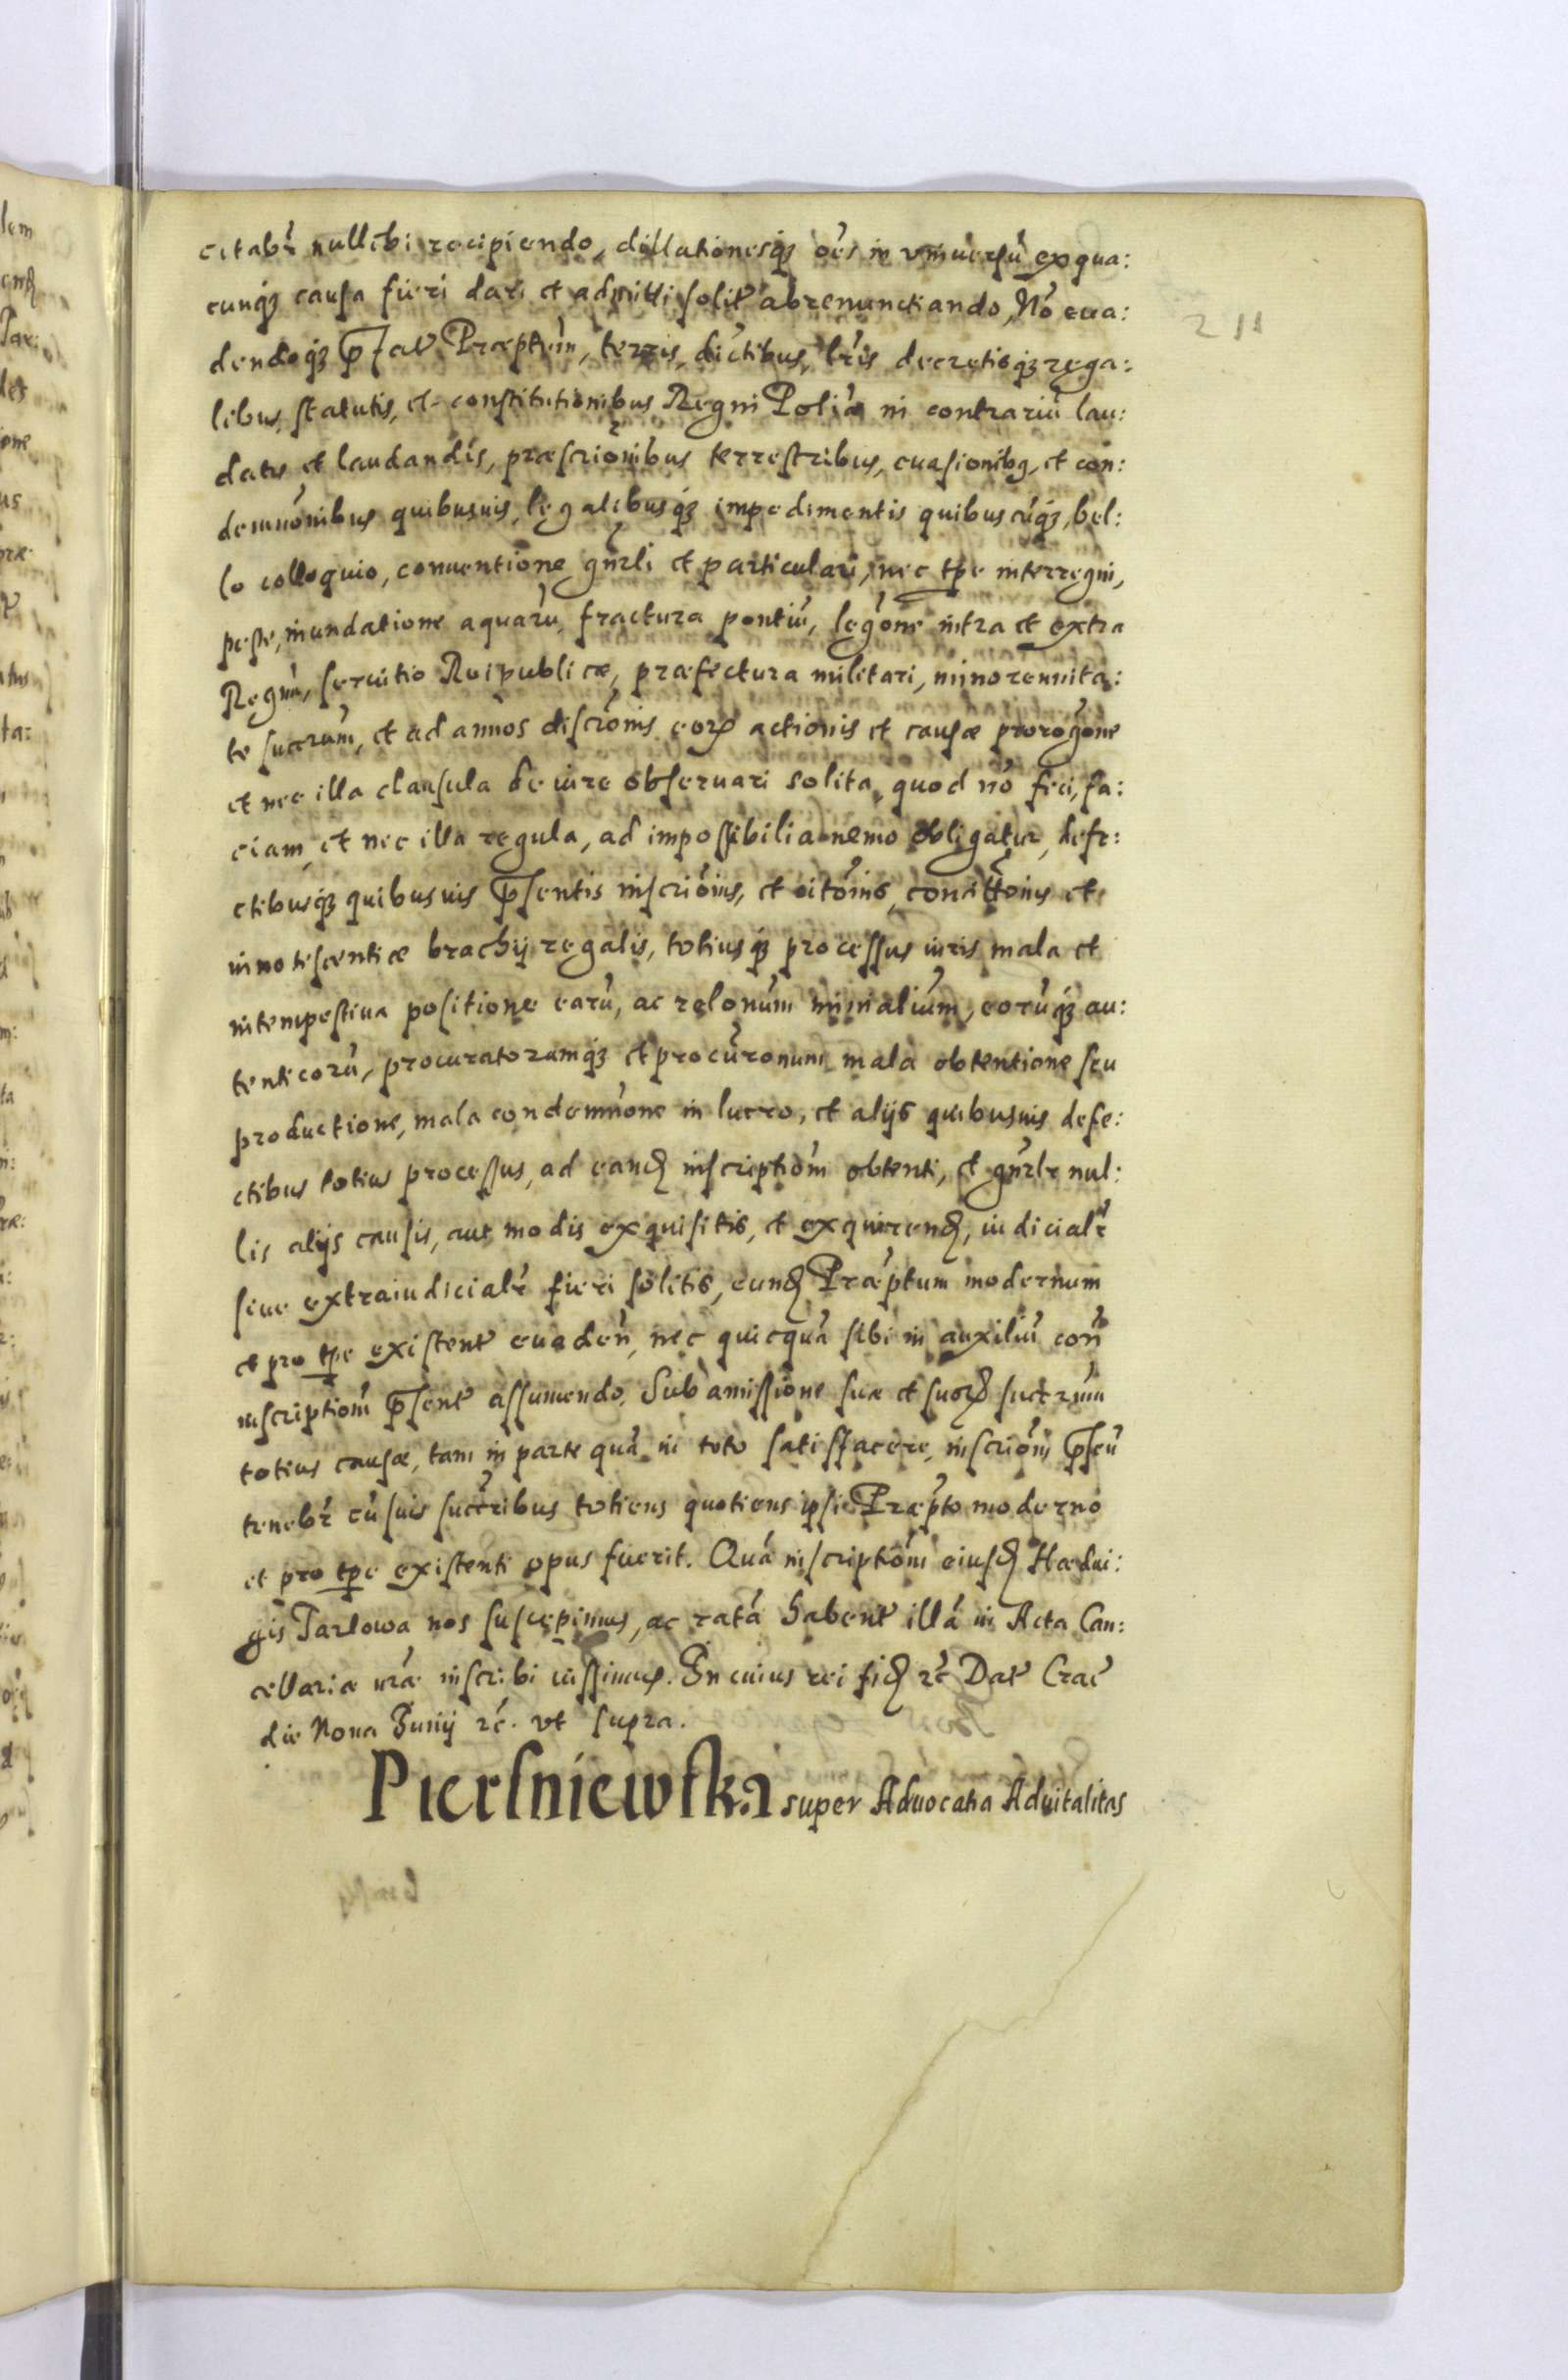 citabr nullibi recipiendo, dillationesq3 oes in vniuersu ex qua:
cunq3 causa fieri dari et admitti solit abrenunctiando, No eua:
dendoq3 pfat Præptum, terris, dictibus, lris decretisq3 rega:
libus, statutis, et constitutionibus Regni Poliæ in contrariu lau:
datis et laudandis, præscrionibus terrestribus, euasionibq, et con:
demnonibus quibusuis, legalibusq3 impedimentis quibuscuq3, bel:
lo colloquio, conuentione gnrli et particulari, nec tpe interregni,
peste, inundatione aquaru, fractura pontiu, legone intra et extra
Regnu, seruitio Reipublicæ, præfectura militari, minorennita:
te succrum, et ad annos discronis eor actionis et causæ prorogone
et nec illa clausula de iure obseruari solita, quod no feci, fa:
ciam, et nec illa regula, ad impossibilia nemo obligatur, defe:
ctibusq3 quibusuis psentis inscrionis, et citonis, condittonis et
innotescentiæ brachij regalis, totiusq3 processus iuris mala et
intempestiua positione earu, ac relonum minialium, eoruq3 au:
tenticoru, procuratorumq3 et procuronum mala obtentione seu
productione, mala condemnone in lucro, et alijs quibusuis defe:
ctibus totius processus, ad eand inscriptiom obtenti, et gnrlr nul:
lis alijs causis, aut modis exquisitis, et exquirend, iudicialr
siue extraiudicialr fieri solitis, eund Præptum modernum
et pro tpe existent euaden, nec quicqua sibi in auxiliu con
inscriptiom psent assumendo. Sub amissione suæ et suor succrum
totius causæ, tam in parte qua in toto satisfacere, inscrioni psen
tenebr cu suis succribus totiens quotiens ipsi Præpto moderno
et pro tpe existenti opus fuerit. Qua inscriptiom eiusd Hædui:
gis Tarlowa nos suscepimus, ac rata habent illa in Acta Can:
cellariæ nræ inscribi iussimus. In cuius rei fid rc Dat Crac
die Nona Junij rc. vt supra.
Piersniewska super Aduocatia Aduitalitas
211